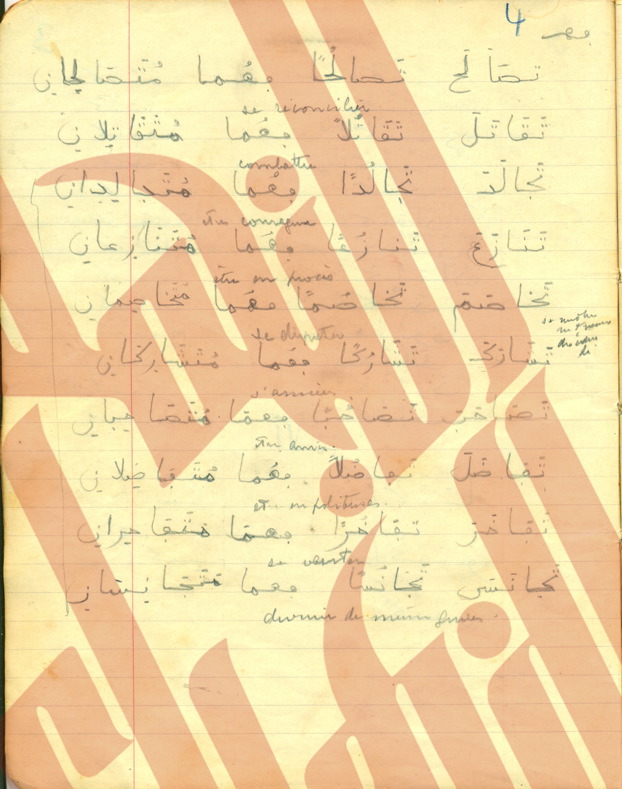 4
تَصَالَحَ تَصَالُحًا فهُما مُتَصَالِحانِ
se réconcilier
تَقَاتَلَ تَقَاتُلاً فهُما مُتَقَاتِلانِ
combattre
تَجَالَدَ تَجَالُدًا فهُما مُتَجَالِدانِ
تَنَازَعَ تَنَازُعًا فهُما مُتَنَازِعانِ
être en procès
تَخَاصَمَ تَخَاصُمًا فهُما مُتَخَاصِمانِ
se disputer
تَشَارَكَ تَشَارُكًا فهُما مُتَشَارِكانِ
s'associer
تَصَاحَبَ تَصَاحُبًا فهُما مُتَصَاحِبانِ
être amis
تَفَاضَلَ تَفَاضُلاً فهُما مُتَفَاضِلانِ
تَفَاخَرَ تَفَاخُرًا فهُما مُتَفَاخِرانِ
se vanter
تَجَانَسَ تَجَانُسًا فهُما مُتَجَانِسانِ
de même